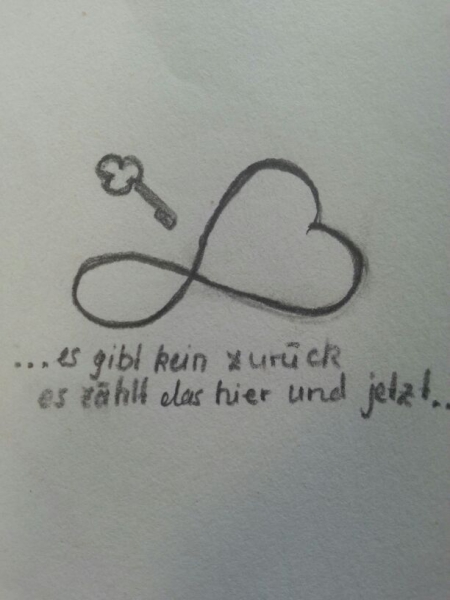 ...es gibt kein zurück
es zählt das hier und jetzt..